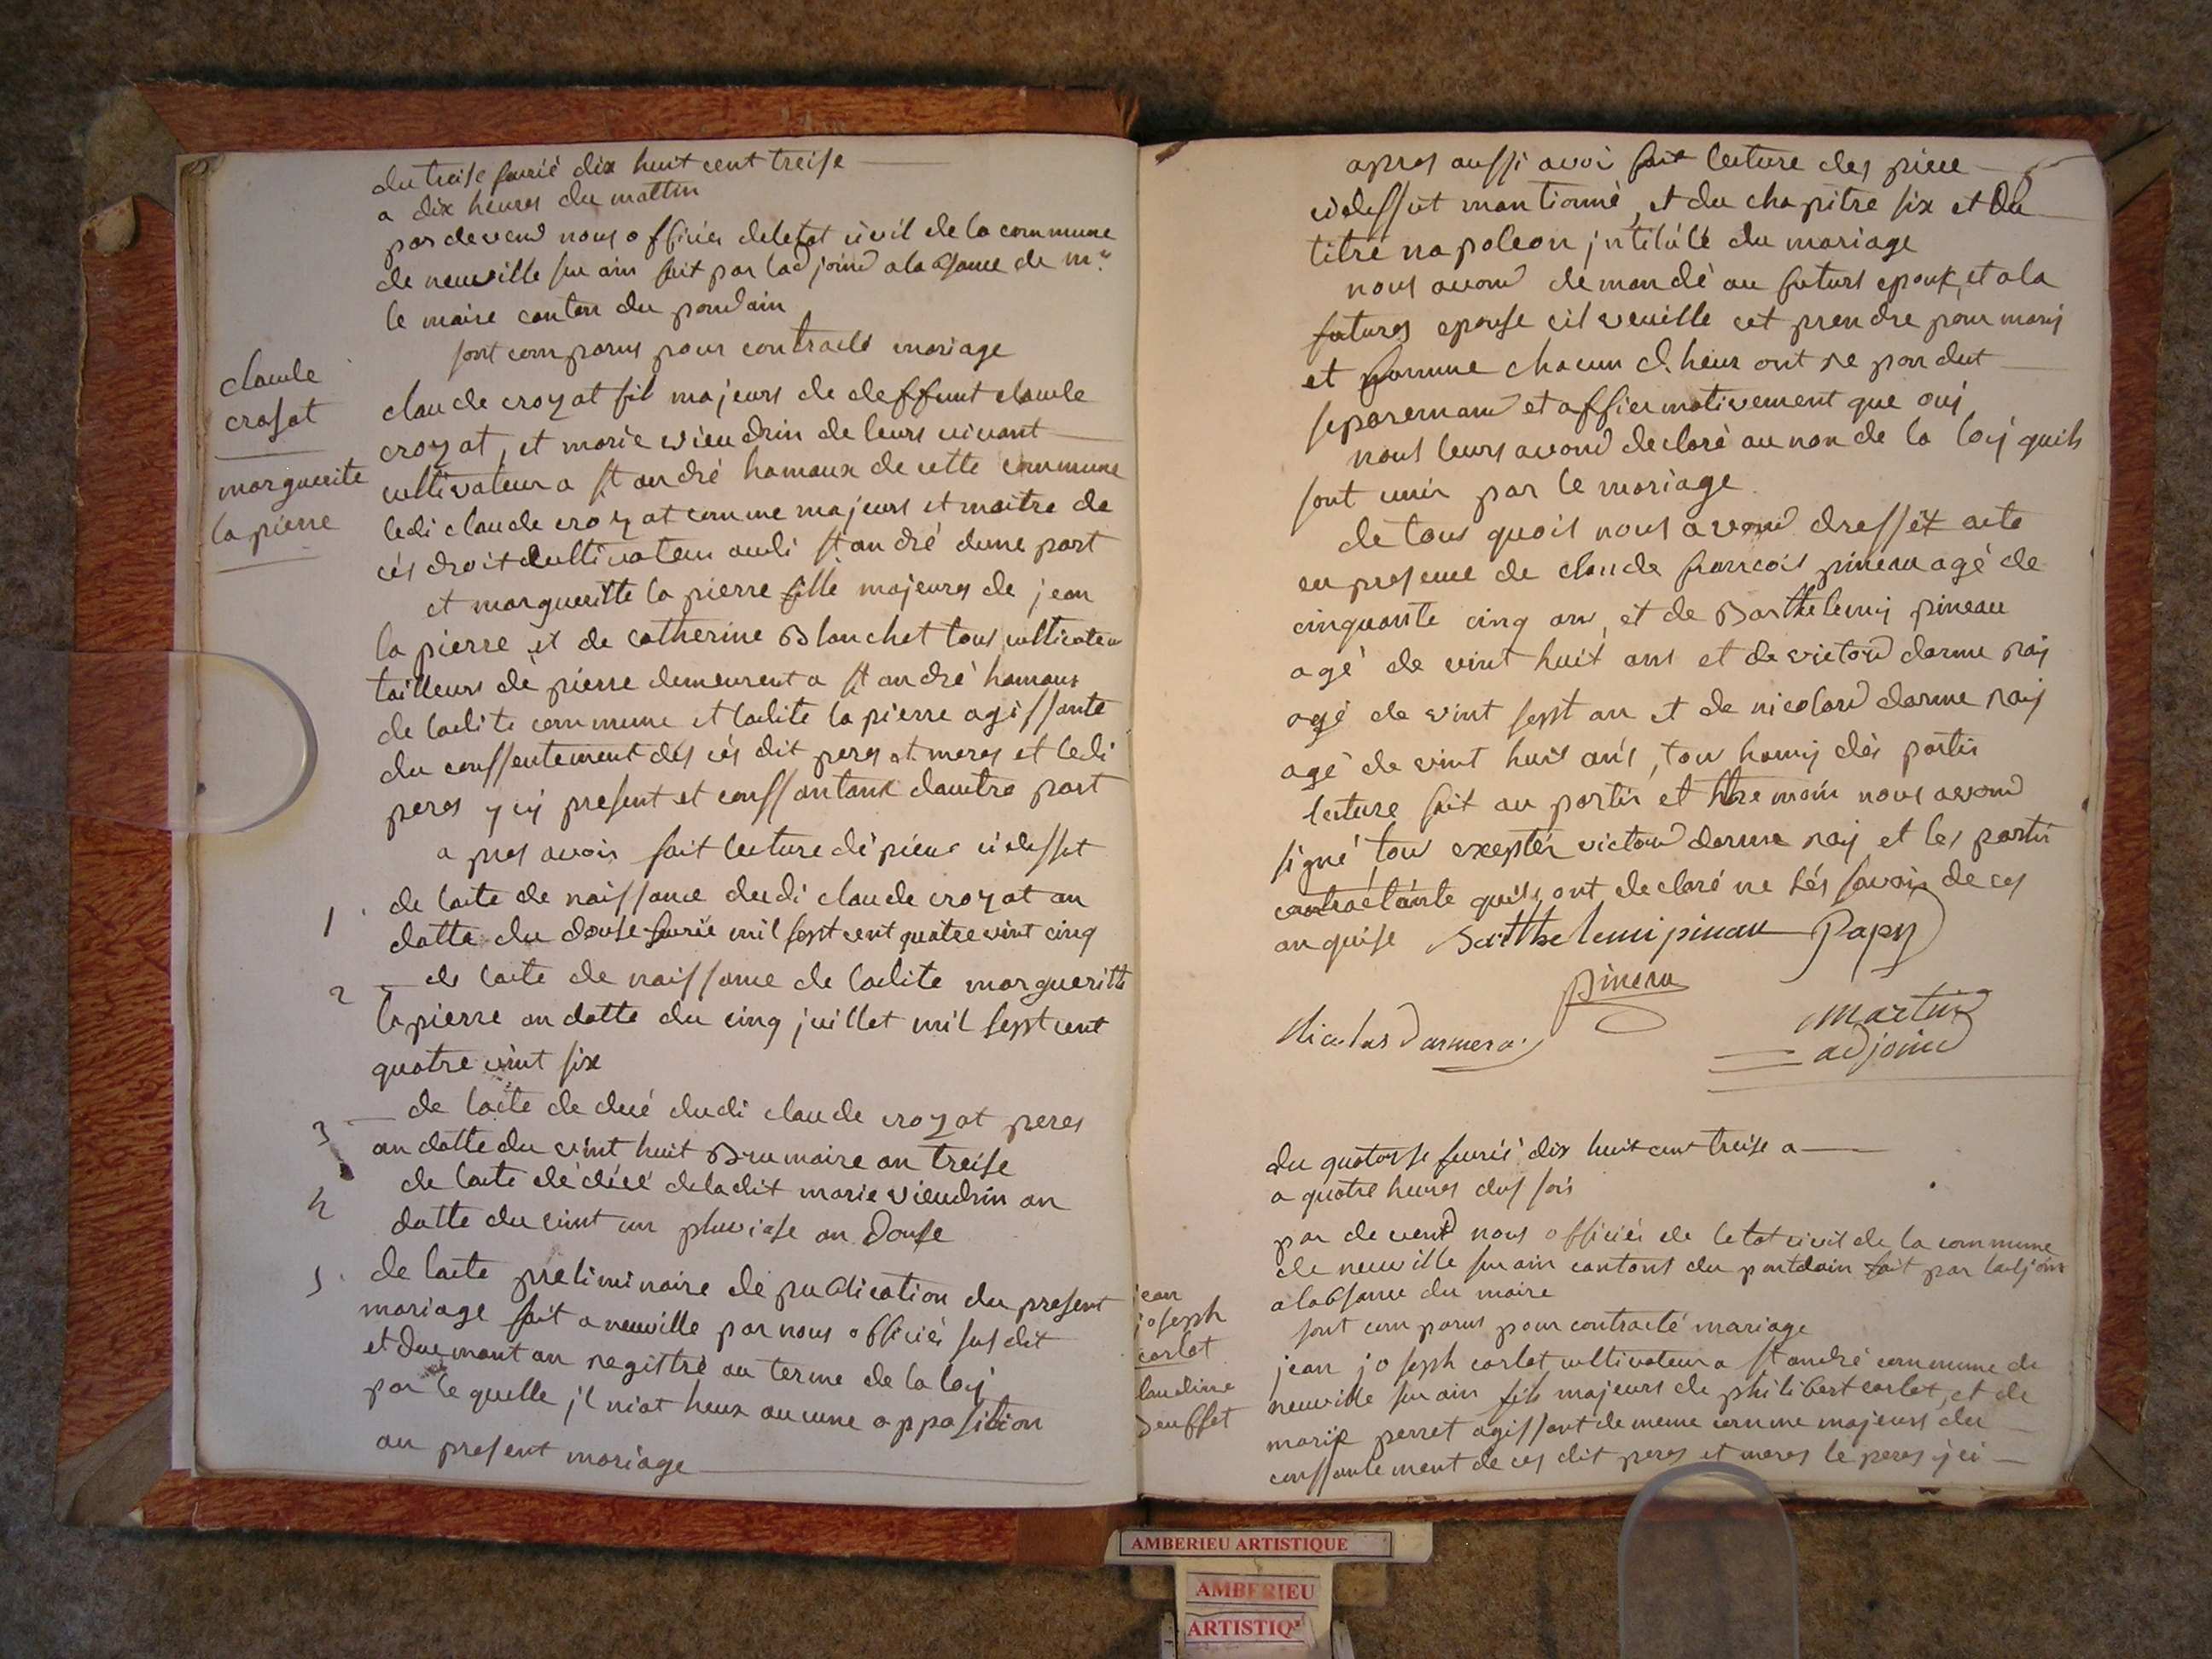 du treise fevrié dix huit cent treise
a dix heures du mattin
par devend nous officier deletat civil de la commune
de neuville sur ain fait par ladjoind a la bsance de mr
le maire canton du pondain
sont comparus pour contracté mariage
claude
crosat
marguerite
la pierre
claude crozat fil majeurs de deffunt claude
crozat, et marie vieudrin de leurs vivant
cultivateur a st andré hamaux de cette commune
ledi claude crozat comme majeurs et maitre de
cés droit cultivateur audi st andré dune part
et margueritte la pierre fille majeures de jean
la pierre et de catherine Blanchet tous cultivateur
tailleurs de pierre demeurent a st andré hamaux
de ladite commune et ladite la pierre agissante
du conssentement des cés dit peres et meres et ledi
peres y cy present et conssantant dautre part
a pres avoir fait lecture dé pieces cidesset
1 de lacte de naissance dudi claude crozat an
datte du douse fevrié mil sept cent quatre vint cinq
2 de lacte de naissance de ladite margueritte
lapierre an datte du cinq juillet mil sept cent
quatre vint six
3 de lacte de decé dudi claude crozat peres
an datte du vint huit Brumaire an treise
4 de lacte de décé deladit marie vieudrin an
datte du vint un pluviose an douse
5 de lacte preliminaire de publication du present
mariage fait a neuville par nous officiér susdit
et duemant an registré au terme de la loy
par lequelle jl niat heux aucune opposition
au present mariage
apres aussi avoir fait lecture des piece
cidessut mantionné, et du chapitre six et du
titre napoleon jntitulé du mariage
nous avond demandé au futurs epoux, et a la
futures epouse cil veuille cet prendre pour mary
et famme chacun d. heux ont repondut
separemand et affiermativement que ouj
nous leurs avond declaré au non de la loy quils
sont unir par le mariage
de tous quois nous avond dressét acte
en presence de claude francois pineau agé de
cinquante cinq ans, et de Barthelemy pineau
agé de vint huit ans et de victord darme ray
agé de vint sept an et de nicolard darme ray
agé de vint huit ans, tou hamy dés partis
lecture fait au partis et ttre moin nous avond
signé, tou exeptér victord darme ray et les partis
contractante quils ont declaré ne lés savoir de ces
anquise Barthelemi pineau Papy
pineau
Nicolas Darmerai
martin
adjoind
du quatorse fevrié dix huit cent treise a
a quatre heures dus soir
par devend nous officiér de letat civil de la commune
de neuville sur ain cantons du pontdain fait par ladjoint
a labsance du maire
sont comparus pour contracté mariage
jean
joseph
carlat
laudine
Beuffet
jean joseph carlat cultivateur a st andré commune de
neuville sur ain fils majeurs de philibert carlat, et de
marie perret agissant de meme comme majeurs du
conssantement de ces dit peres et meres le peres yci